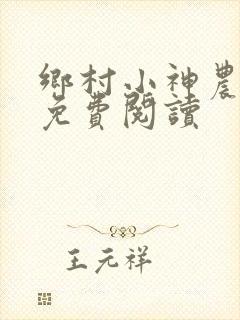 鄉村小神農
免費閱讀
王元祥